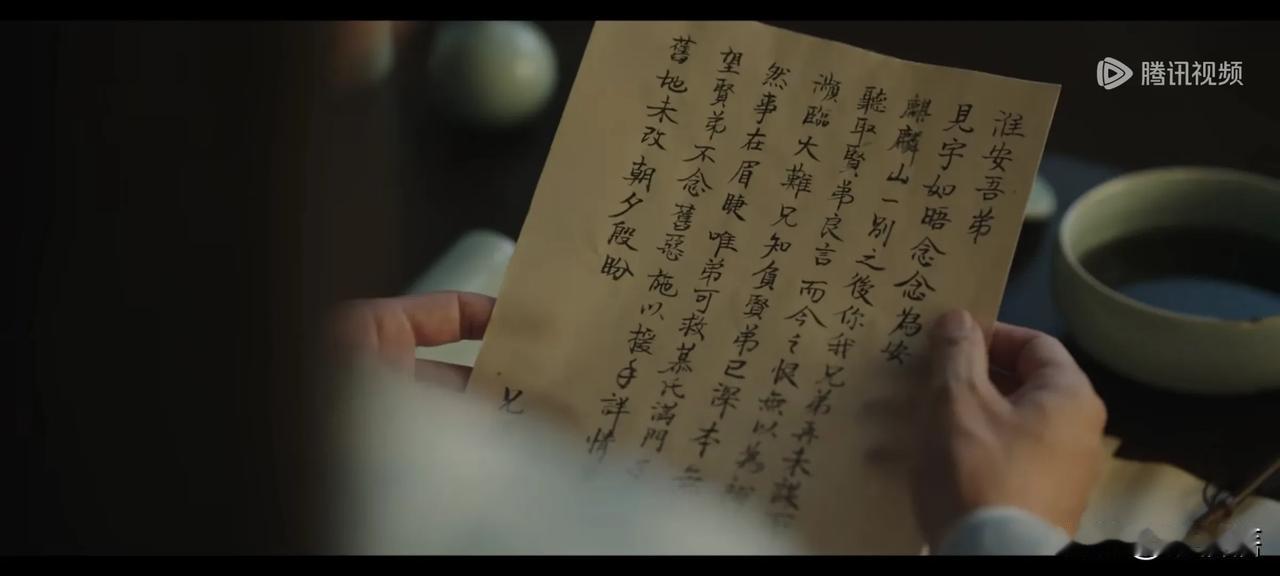 淮安吾弟
見字如晤念念為安
麒麟山一別之後你我兄弟再未謀
聽取賢弟良言而今之恨無以為
瀕臨大難兄知負賢弟已深本無
然事在眉睫唯弟可救慕氏滿門
望賢弟不念舊惡施以援手詳情
舊地未改朝夕殷盼
兄
腾讯视频